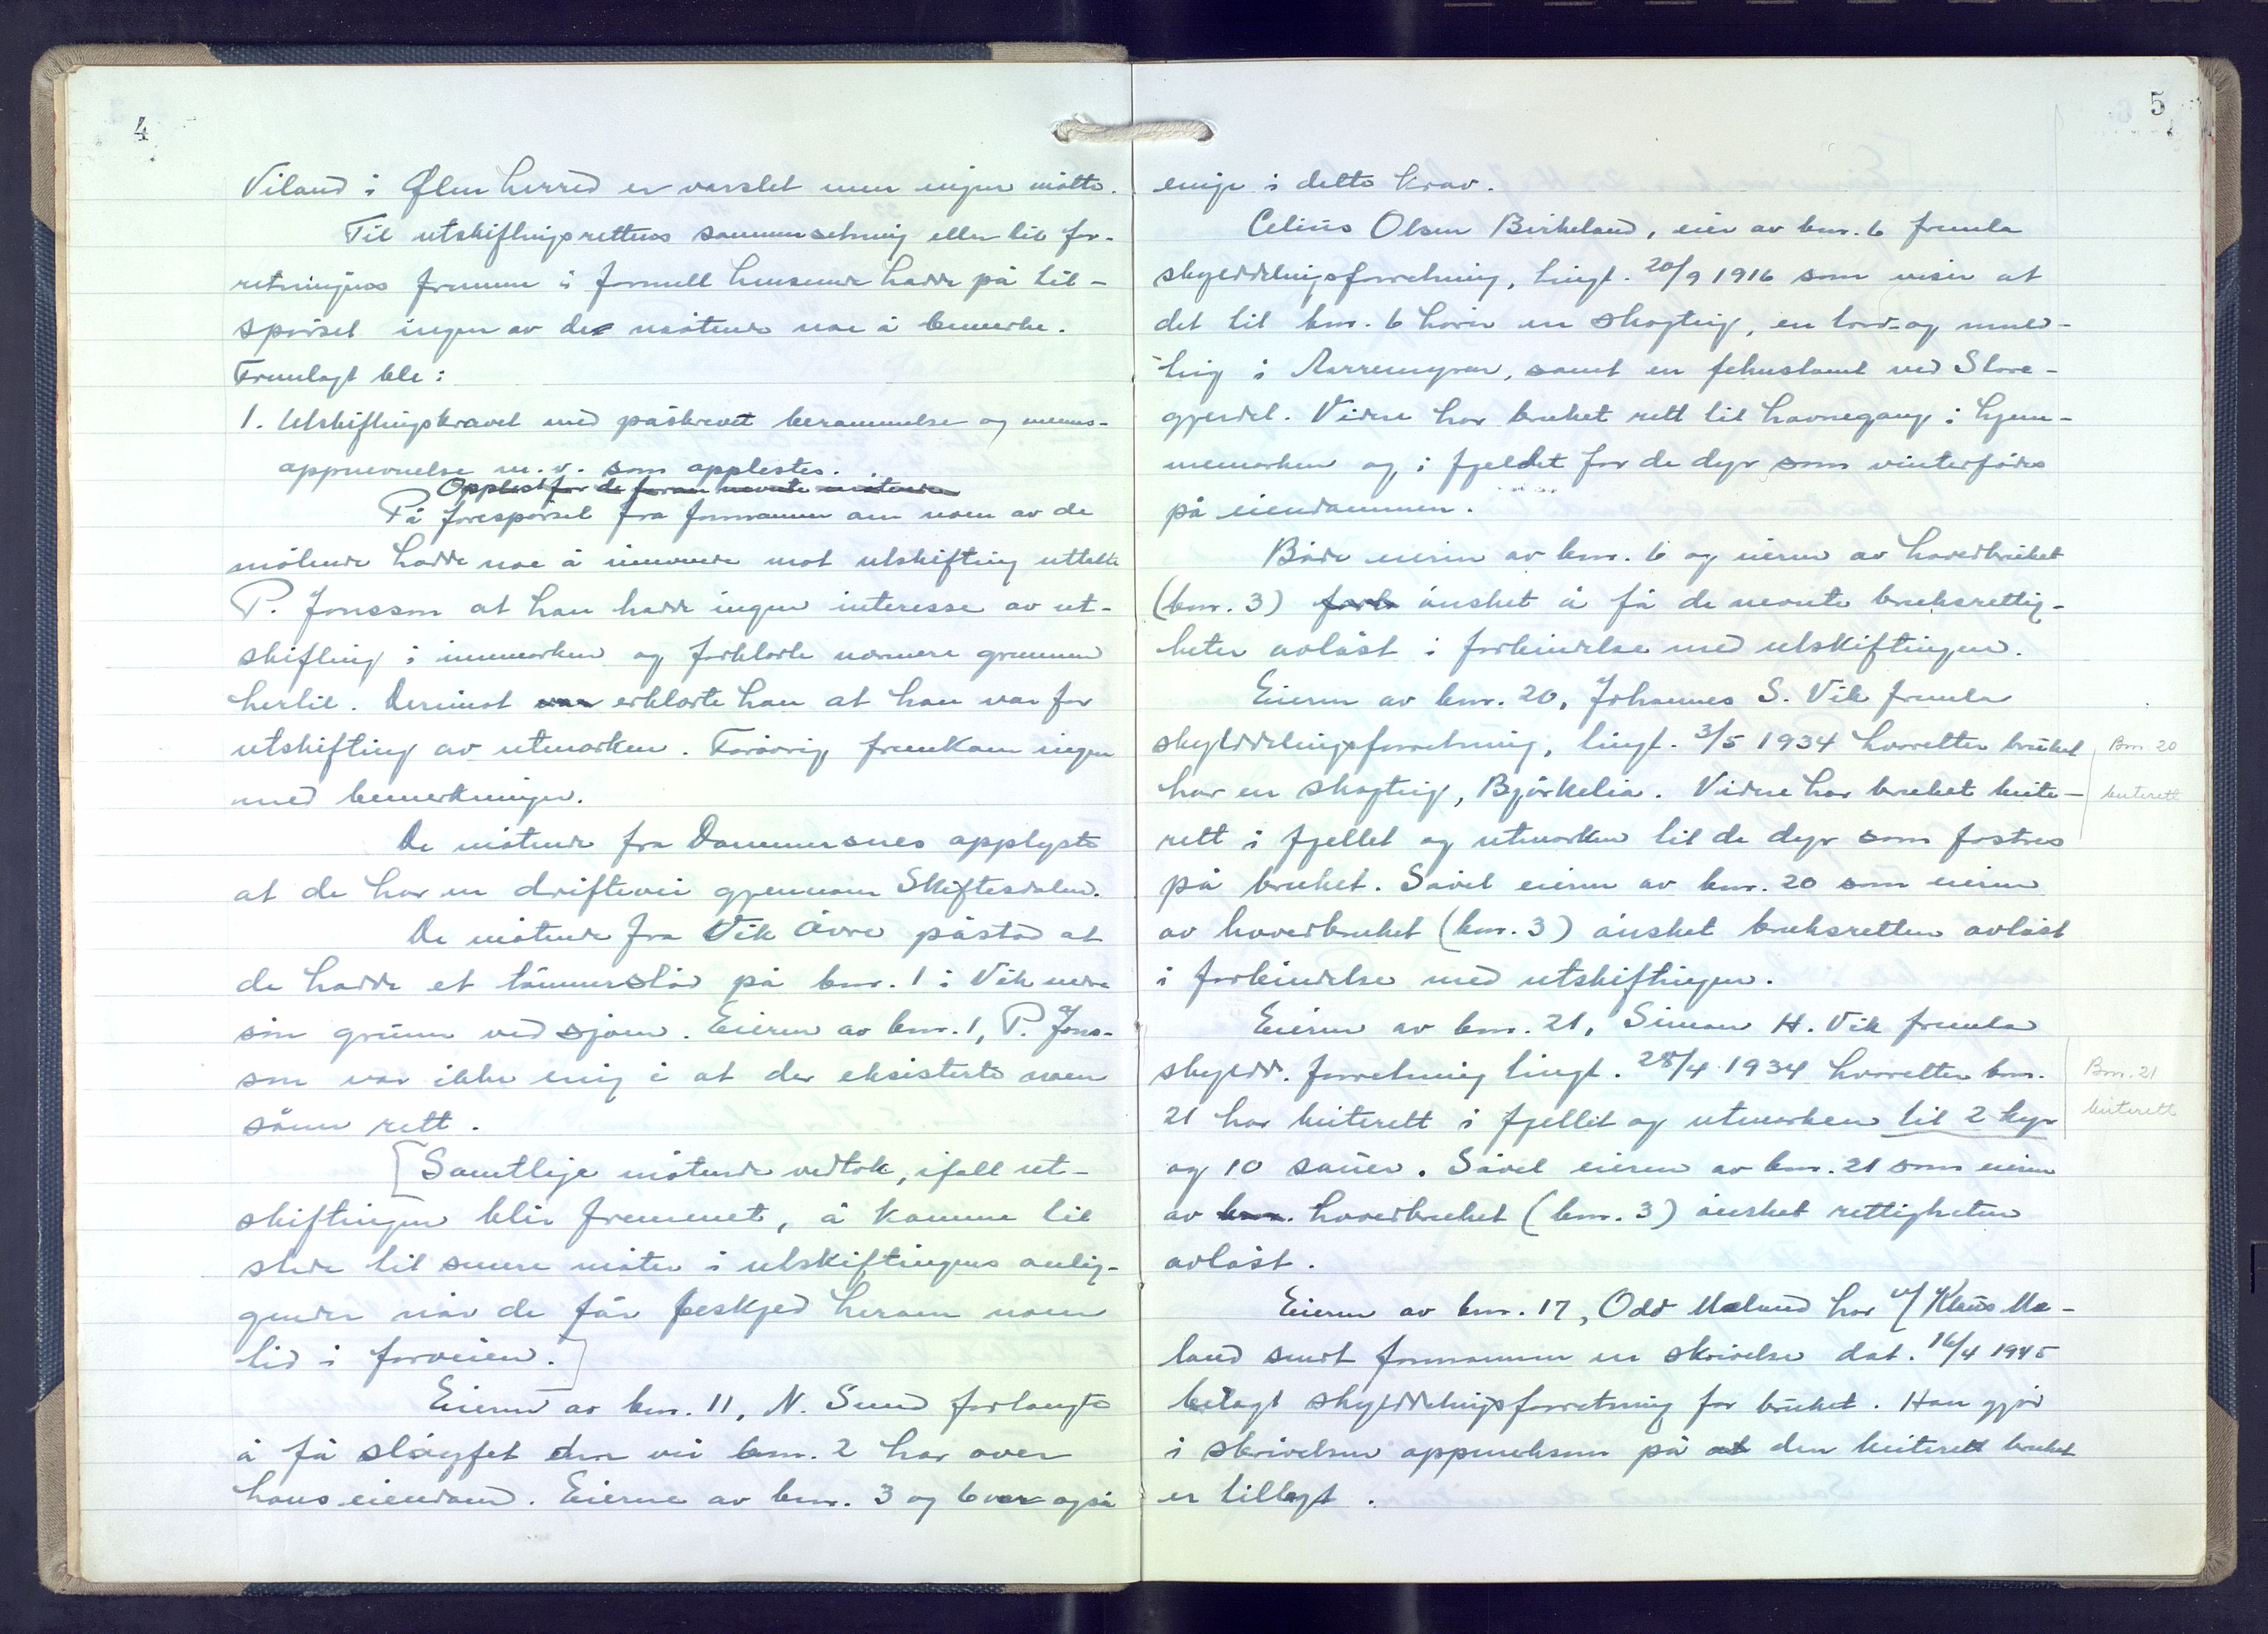 4
Viland i Ølen herred er varslet men ingen møtte.
Til utskiftningsrettens sammensetning eller til for-
retningens fremme i formell henseende hadde på til-
spørsel ingen av de møtende noe å bemerke.
Fremlagt ble:
1. Utskiftningskravet med påskrevet berammelse og menns-
oppnevnelse m.v. som opplestes.
Opplest for de foran nevnte møtende
På forespørsel fra formannen om noen av de
møtende hadde noe å innvende mot utskifting uttalte
P. Jonsson at han hadde ingen interesse av ut-
skifting i innmarken og forklarte nærmere grunnen
hertil. Derimot erklærte han at han var for
utskifting av utmarken. Forøvrig fremkom ingen
med bemerkninger.
De møtende fra Dommersnes opplyste
at de har en driftevei gjennom Skiftesdalen.
De møtende fra Vik Øvre påstod at
de hadde et tømmerstød på bnr. 1 i Vik nedre
sin grunn ved sjøen. Eieren av bnr. 1, P. Jons-
son var ikke enig i at der eksisterte noen
sånn rett.
[Samtlige møtende vedtok, ifall ut-
skiftningen blir fremmet, å komme til
stede til senere møter i utskiftningens anlig-
gender når de får beskjed herom noen
tid i forveien.]
Eieren av bnr. 11, N. Sund forlangte
å få sløyfet den vei bnr. 2 har over
hans eiendom. Eierne av bnr. 3 og 6 var også
5
enige i dette krav.
Celius Olsen Birkeland, eier av bnr. 6 fremla
skylddelingsforretning, tingl. 20/9 1916 som viser at
det til bnr. 6 hører en skogteig, en torv- og muld-
teig i Aarremyren, samt en fehustomt ved Store-
gjerdet. Videre har bruket rett til havnegang i hjem-
memarken og i fjeldet for de dyr som vinterfødes
på eiendommen.
Både eieren av bnr. 6 og eieren av hovedbruket
(bnr. 3) ønsket å få de nevnte bruksrettig-
heter avløst i forbindelse med utskiftingen.
Eieren av bnr. 20, Johannes S. Vik fremla
skylddelingsforretning, tingl. 3/5 1934 hvoretter bruket
har en skogteig, Bjørkelia. Videre har bruket beite-
rett i fjellet og utmarken til de dyr som fostres
på bruket. Såvel eieren av bnr. 20 som eieren
av hovedbruket (bnr. 3) ønsket bruksretten avløst
i forbindelse med utskiftingen.
Eieren av bnr. 21, Simon H. Vik fremla
skyldd. forretning tingl. 28/4 1934 hvoretter bnr.
21 har beiterett i fjellet og utmarken til 2 kyr
og 10 sauer. Såvel eieren av bnr. 21 som eieren
av bnr. hovedbruket (bnr. 3) ønsket rettigheten
avløst.
Eieren av bnr. 17, Odd Mæland har v/ Klaus Mæ-
land sendt formannen en skrivelse dat. 16/4 1945
bilagt skylddelingsforretning for bruket. Han gjør
i skrivelsen oppmerksom på den beiterett bruket
er tillagt.
Bnr. 20
beiterett
Bnr. 21
beiterett